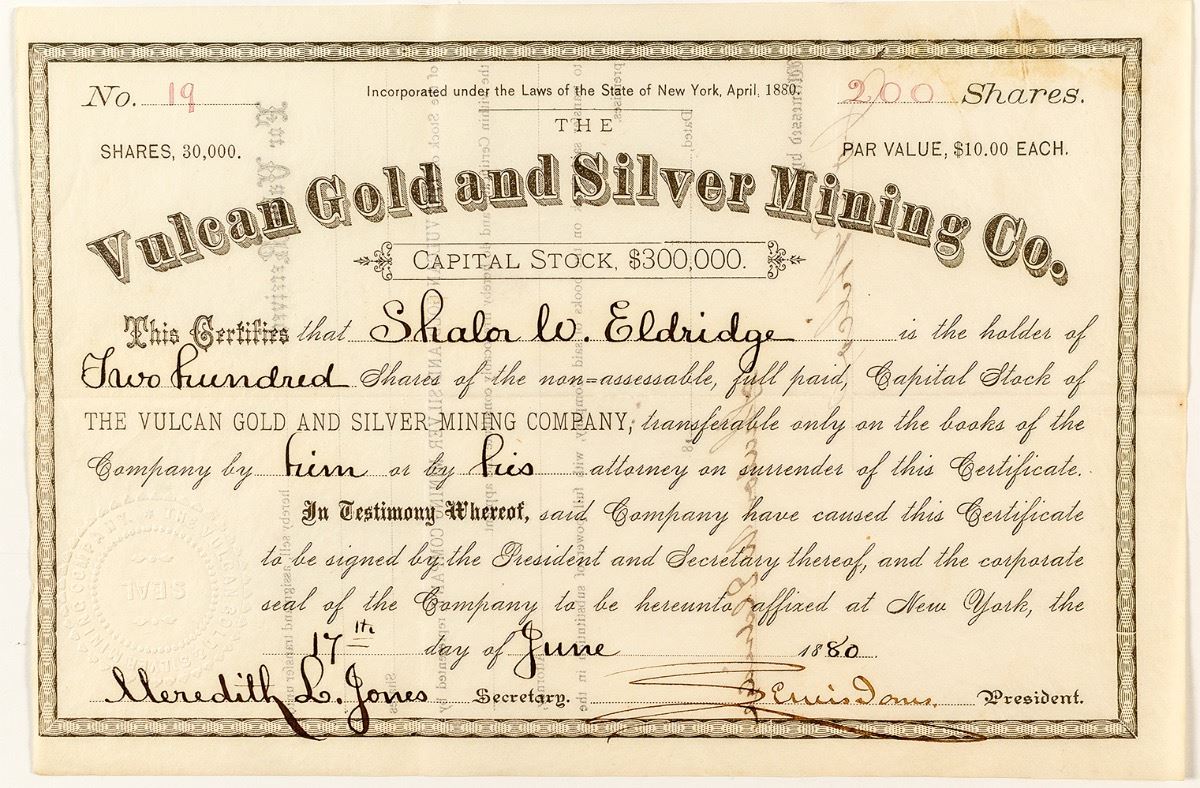 No. 19
Incorporated under the Laws of the State of New York, April, 1880.
200 Shares.
SHARES, 30,000.
THE
PAR VALUE, $10.00 EACH.
Vulcan Gold and Silver Mining Co.
CAPITAL STOCK, $300,000.
This Certifies that Shalor W. Eldridge is the holder of
Two hundred Shares of the non=assessable, full paid, Capital Stock of
THE VULCAN GOLD AND SILVER MINING COMPANY, transferable only on the books of the
Company by him or by his attorney on surrender of this Certificate.
In Testimony Whereof, said Company have caused this Certificate
to be signed by the President and Secretary thereof, and the corporate
seal of the Company to be hereunto affixed at New York, the
17th day of June 1880
Meredith L. Jones Secretary. President.
SEAL